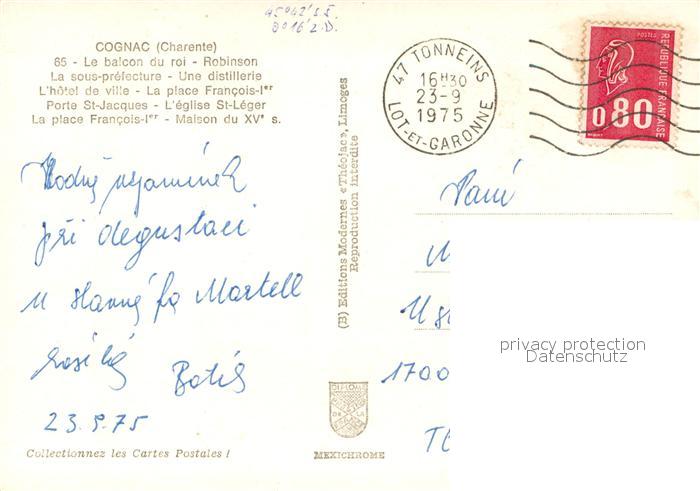 45°42' s.š.
0°16' z.D.
COGNAC (Charente)
65 - Le balcon du roi - Robinson
La sous-préfecture - Une distillerie
L'hôtel de ville - La place François-Iᵉʳ
Porte St-Jacques - L'église St-Léger
La place François-Iᵉʳ - Maison du XVᵉ s.
při degustaci
u slavné fy Martell
23.9.75
Collectionnez les Cartes Postales !
(B) Editions Modernes «Théojac», Limoges
Reproduction interdite
DIPLOME
MEXICHROME
47 TONNEINS
16H30
23-9
1975
LOT-ET-GARONNE
POSTES
REPUBLIQUE FRANÇAISE
0,80
Paní
1700
privacy protection
Datenschutz